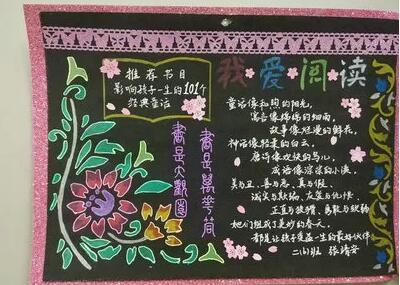 我爱阅读
推荐书目
影响孩子一生的101个
经典童话
书是万花筒
书是大观园
童话像和煦的阳光,
寓言像绵绵的细雨,
故事像烂漫的鲜花,
神话像轻柔的白云,
唐诗像欢快的鸟儿,
成语像淙淙的小溪
美与丑、善与恶、真与假、
诚实与欺骗、友爱与仇恨
正直与狡猾、勇敢与软弱
她们组成了美妙的春天,
都是让孩子受益一生的最好伙伴
二(1)班 张靖安